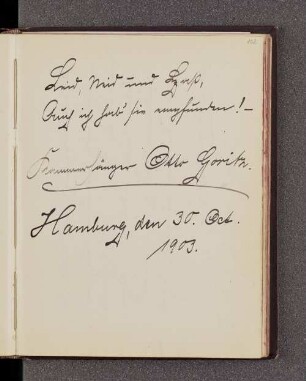 Leid, Neid und Haß,
Auch ich hab' sie empfunden! –
Kammersänger Otto Goritz.
Hamburg, den 30. Oct.
1903.